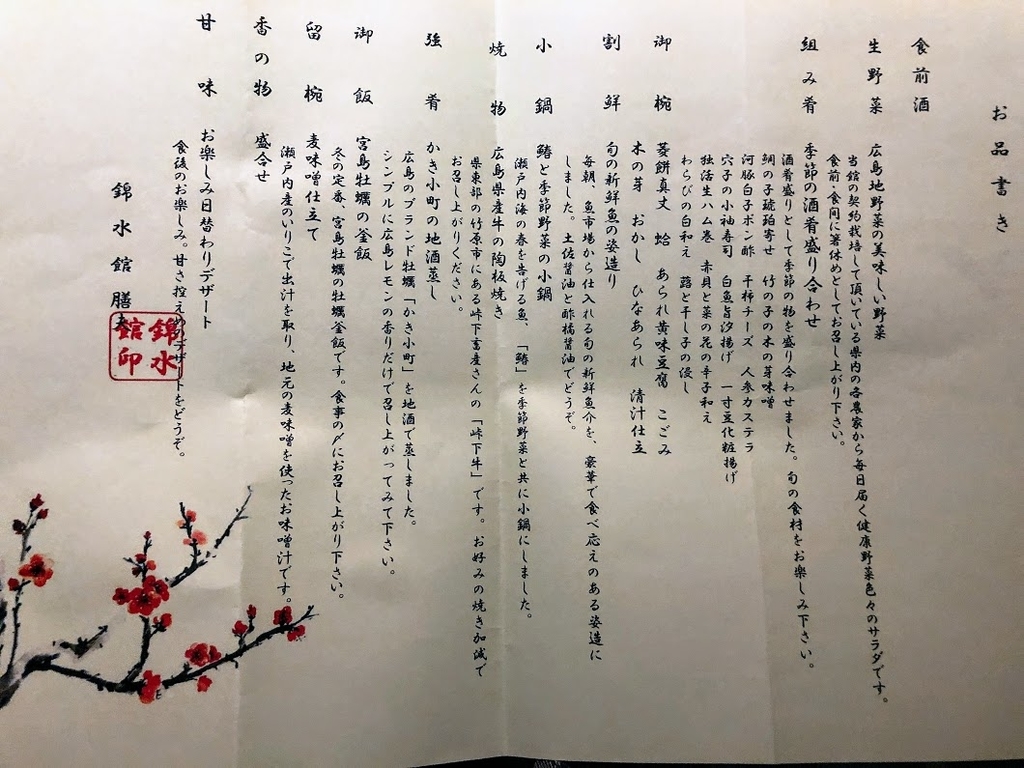 お品書き
食前酒
生野菜　広島地野菜の美味しい野菜
当館の契約栽培して頂いている県内の各農家から毎日届く健康野菜色々のサラダです。
食前・食間に箸休めとしてお召し上がり下さい。
組み肴　季節の酒肴盛り合わせ
酒肴盛りとして季節の物を盛り合わせました。旬の食材をお楽しみ下さい。
鯛の子琥珀寄せ　竹の子の木の芽味噌
河豚白子ポン酢　干柿チーズ　人参カステラ
穴子の小袖寿司　白魚旨汐揚げ　一寸豆化粧揚げ
独活生ハム巻　赤貝と菜の花の辛子和え
わらびの白和え　蕗と干し子の浸し
御椀　菱餅真丈　蛤　あられ黄味豆腐　こごみ
木の芽　おかし　ひなあられ　清汁仕立
割鮮　旬の新鮮魚の姿造り
毎朝、魚市場から仕入れる旬の新鮮魚介を、豪華で食べ応えのある姿造に
しました。土佐醤油と酢橘醤油でどうぞ。
小鍋　鰆と季節野菜の小鍋
瀬戸内海の春を告げる魚、「鰆」を季節野菜と共に小鍋にしました。
焼物　広島県産牛の陶板焼き
県東部の竹原市にある峠下畜産さんの「峠下牛」です。お好みの焼き加減で
お召し上がりください。
強肴　かき小町の地酒蒸し
広島のブランド牡蠣「かき小町」を地酒で蒸しました。
シンプルに広島レモンの香りだけで召し上がってみて下さい。
御飯　宮島牡蠣の釜飯
冬の定番、宮島牡蠣の牡蠣釜飯です。食事の〆にお召し上がり下さい。
留椀　麦味噌仕立て
瀬戸内産のいりこで出汁を取り、地元の麦味噌を使ったお味噌汁です。
香の物　盛合せ
甘味　お楽しみ日替わりデザート
食後のお楽しみ。甘さ控えめのデザートをどうぞ。
錦水館　膳
錦水
館印